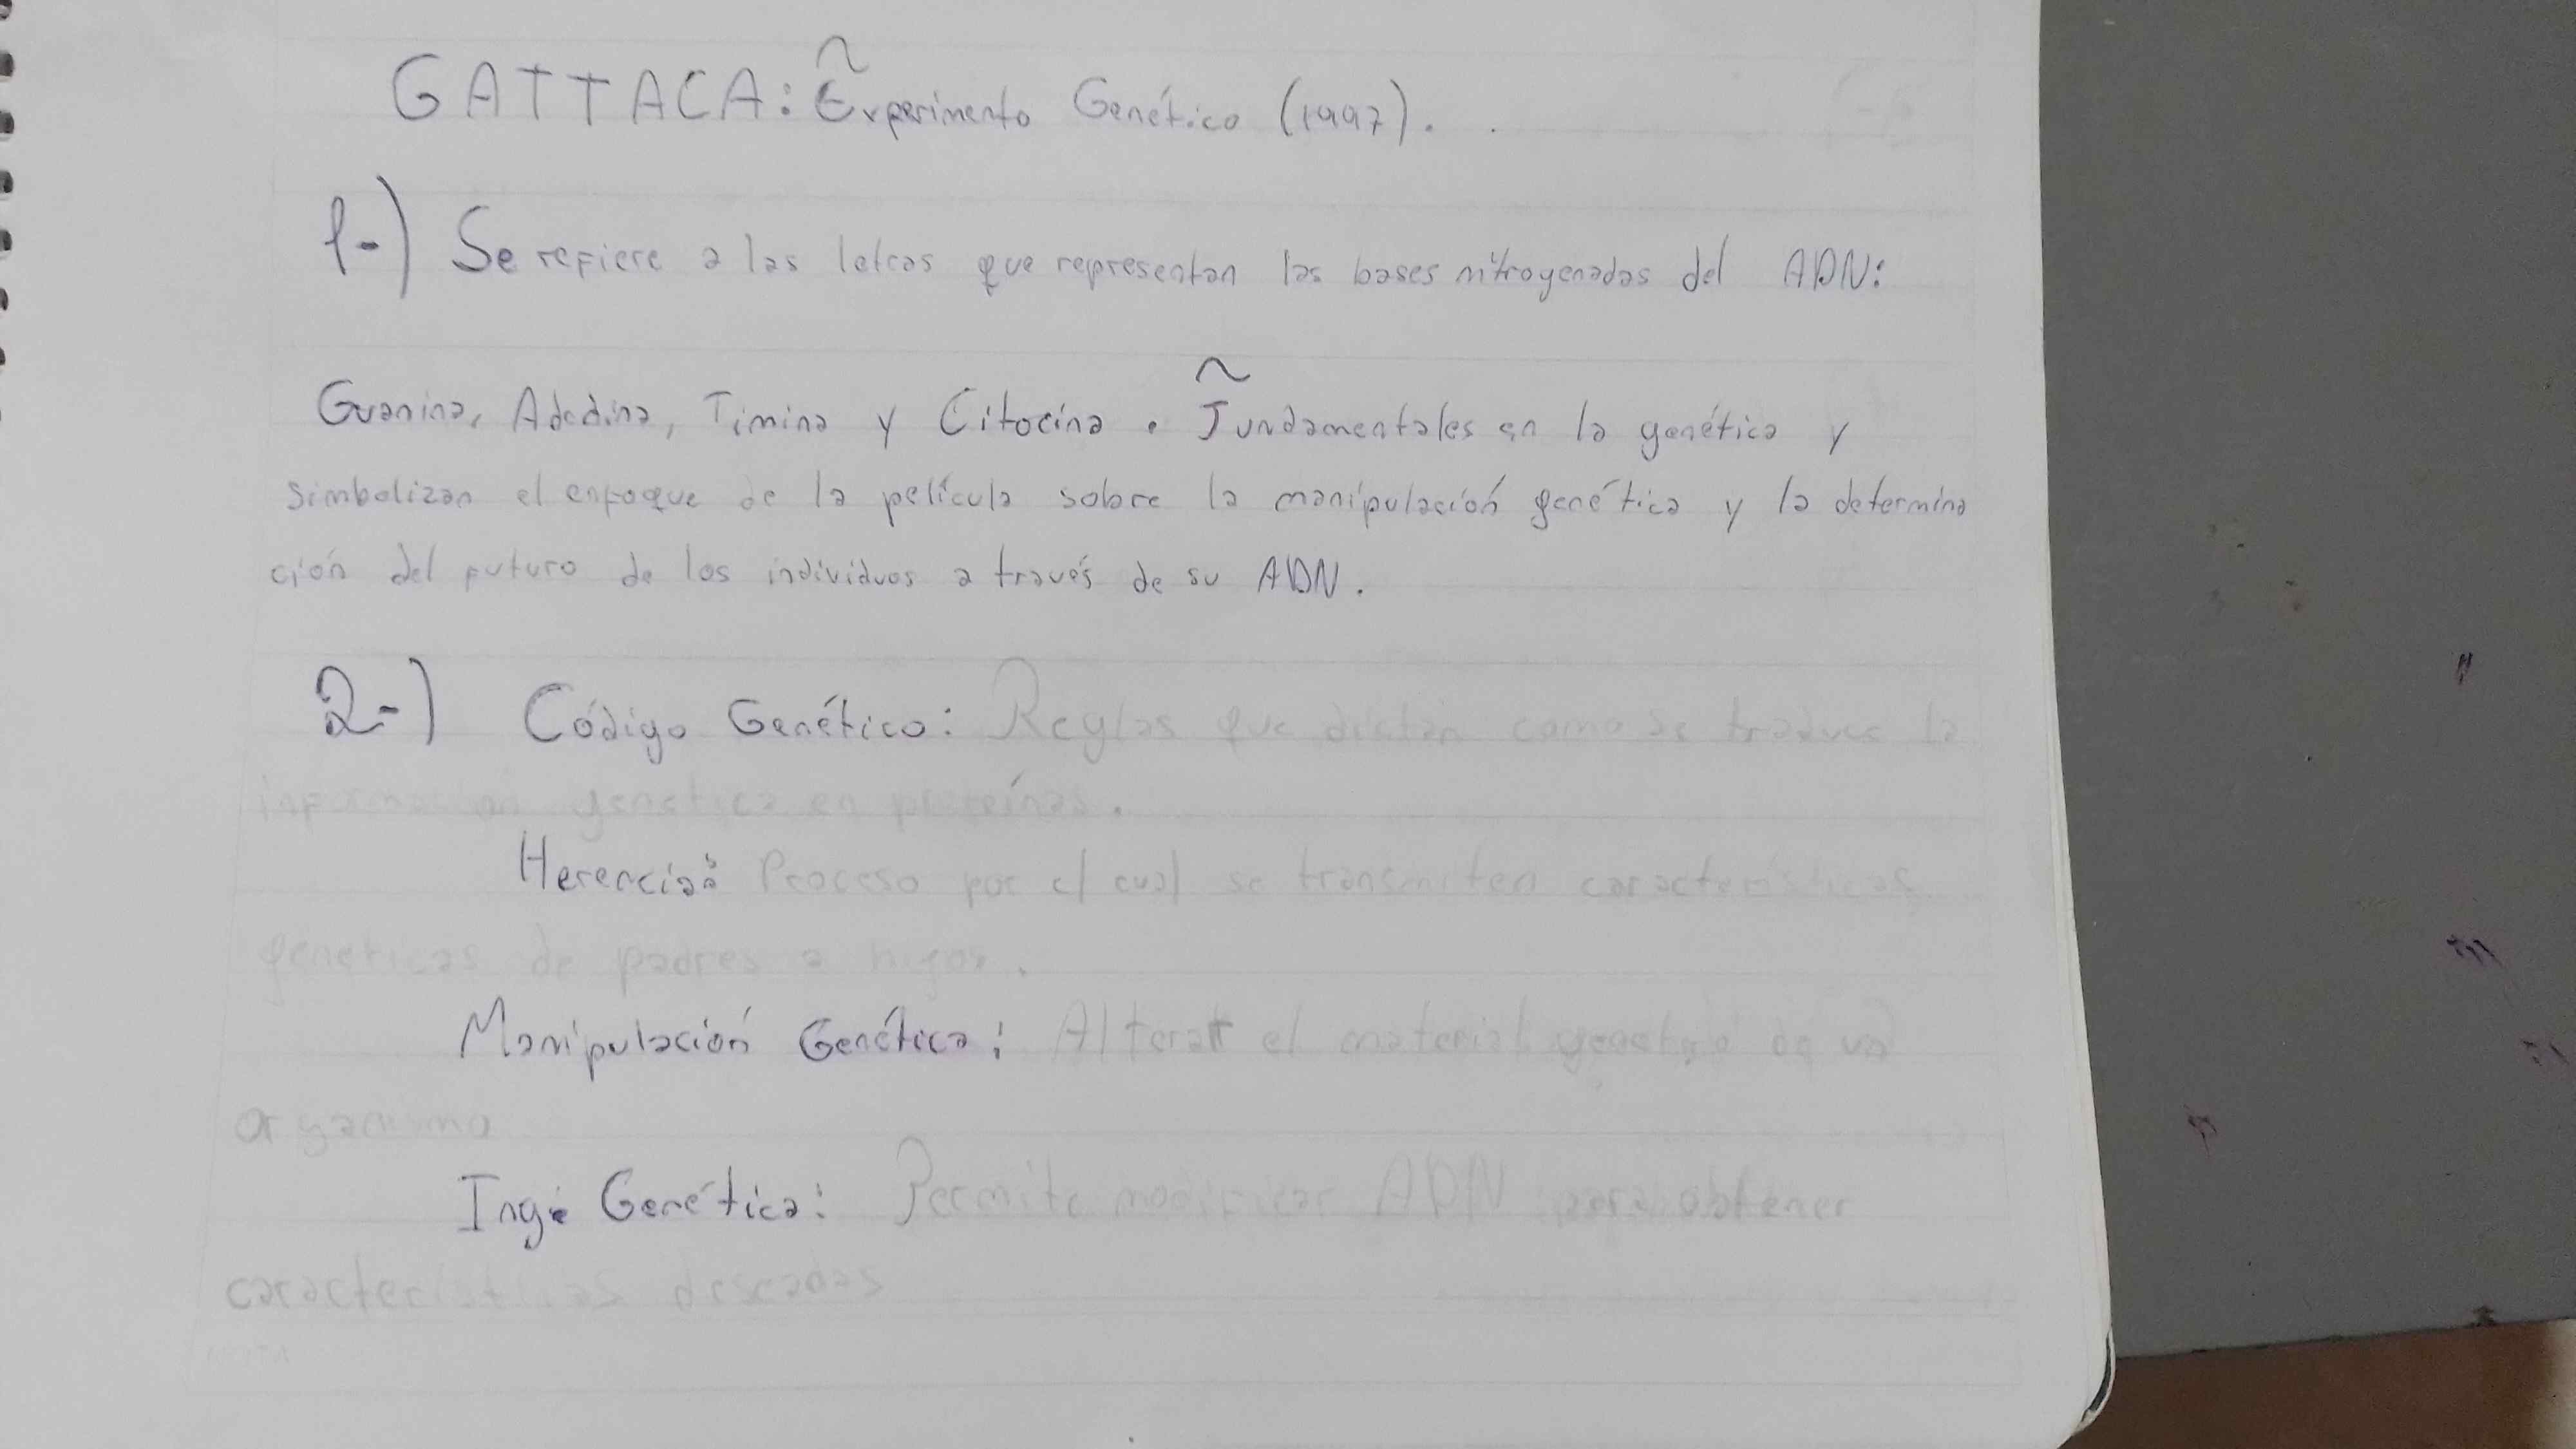 GATTACA: Experimento Genético (1997).
1-) Se refiere a las letras que representan las bases nitrogenadas del ADN:
Guanina, Adedina, Timina y Citocina. Fundamentales en la genética y
simbolizan el enfoque de la película sobre la manipulación genética y la determina
ción del futuro de los individuos a través de su ADN.
2-) Código Genético: Reglas que dictan como se traduce la
información genetica en proteínas.
Herencia: Proceso por el cual se transmiten características
geneticas de padres a hijos.
Manipulación Genética: Alterar el material genetico de un
organismo
Ing. Genética: Permite modificar ADN para obtener
caracteristicas deseadas